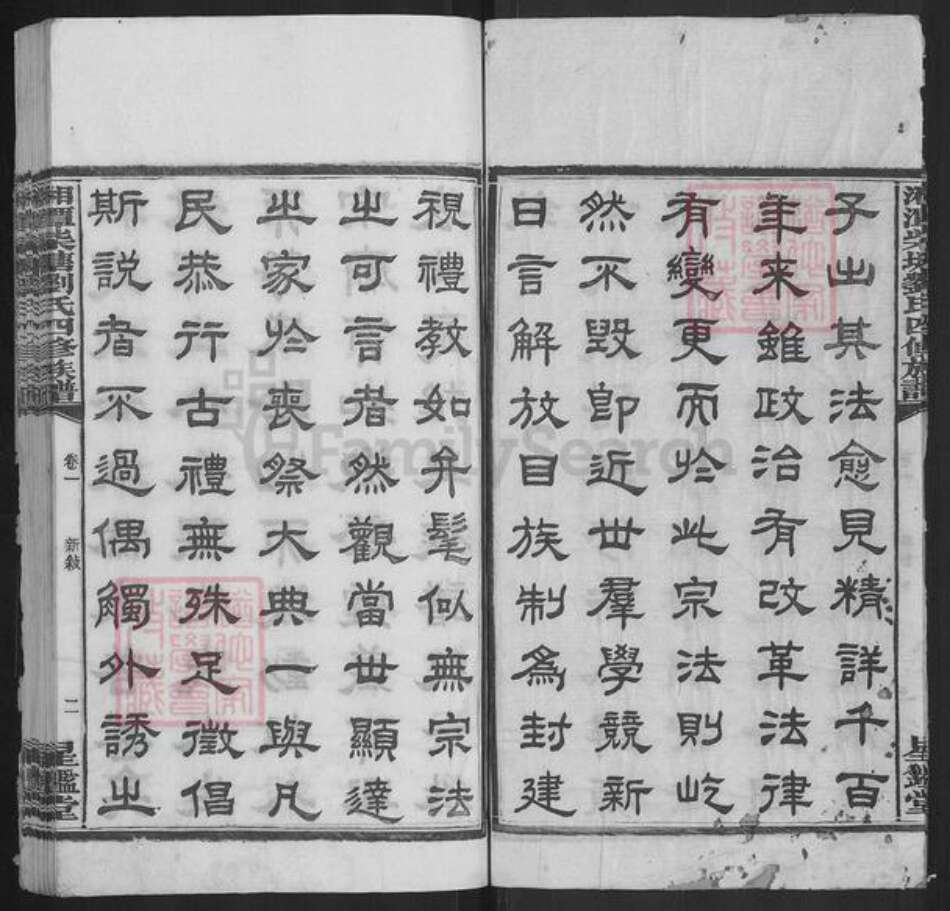 子之其法愈見精詳千百
年来雖政治有改革法律
有變更而於此宗法則屹
然不毀即近世羣學競新
日言解放目族制為封建
視禮教如弁髦似無宗法
之可言者然觀當世顯達
之家於喪祭大典一與凡
民恭行古禮無殊足徵倡
斯說者不過偶觸外誘之
湘潭柴塘劉氏四修族譜
卷一
新敍
二
星鑑堂
FamilySearch